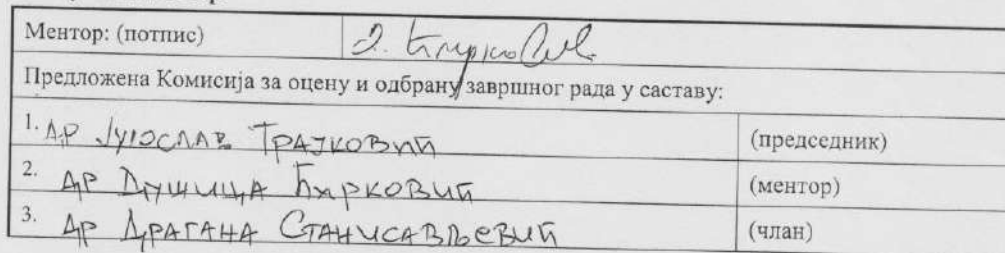 Ментор: (потпис) Д. Ћирковић
Предложена Комисија за оцену и одбрану завршног рада у саставу:
1. ДР ЈУГОСЛАВ ТРАЈКОВИЋ (председник)
2. ДР ДУШИЦА ЋИРКОВИЋ (ментор)
3. ДР ДРАГАНА СТАНИСАВЉЕВИЋ (члан)